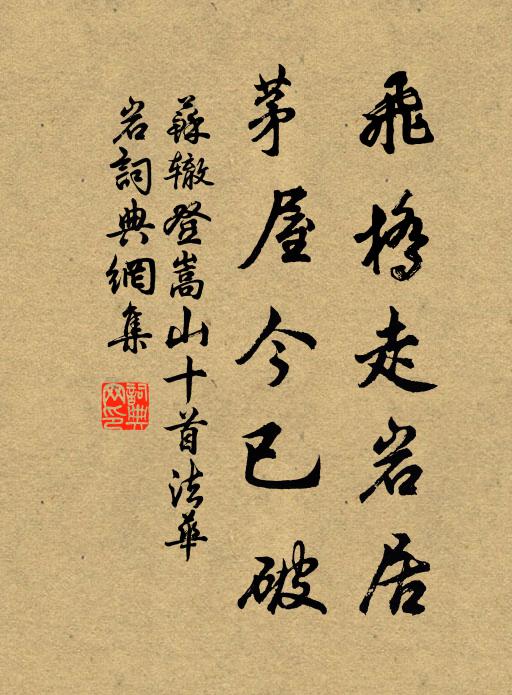 飛橋走岩居
茅屋今已破
蘇辙登嵩山十首法華
岩詞典網集
詞典网印